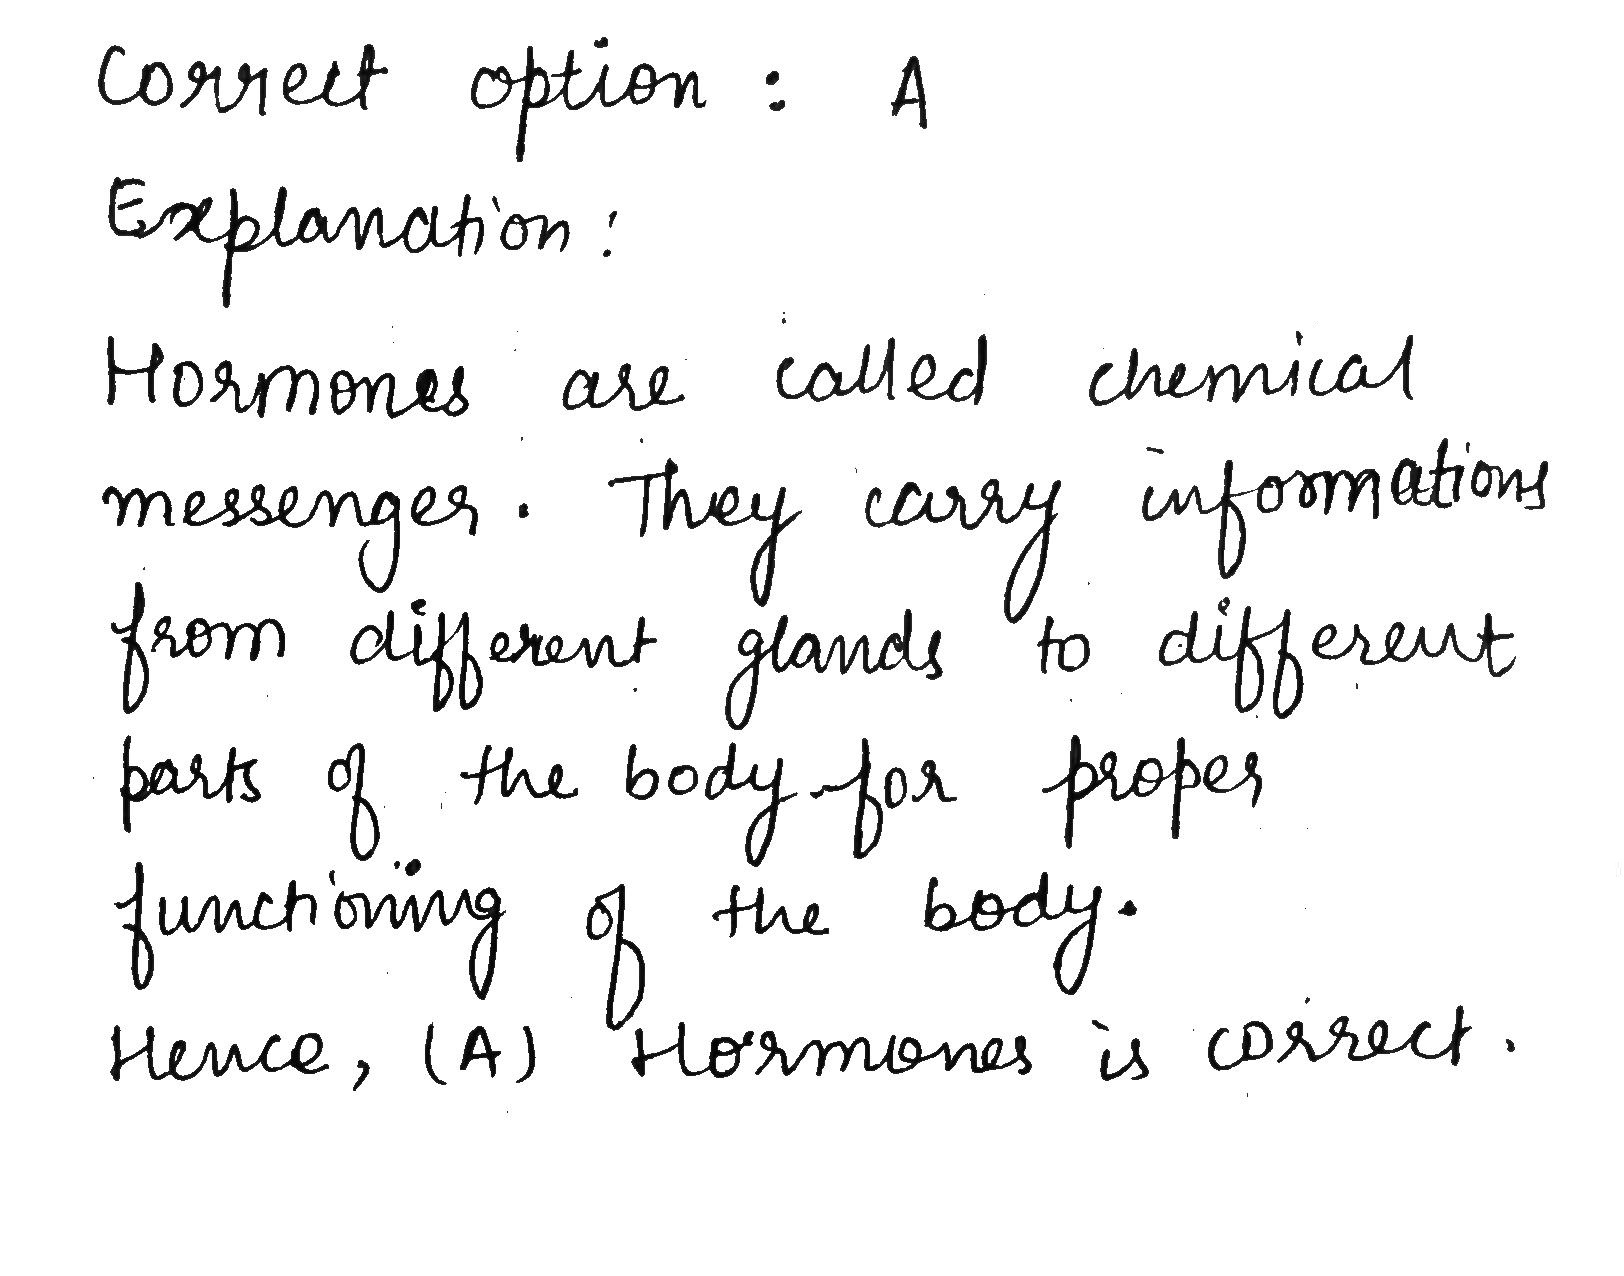 Correct option : A
Explanation :
Hormones are called chemical
messenger. They carry informations
from different glands to different
parts of the body for proper
functioning of the body.
Hence, (A) Hormones is correct.